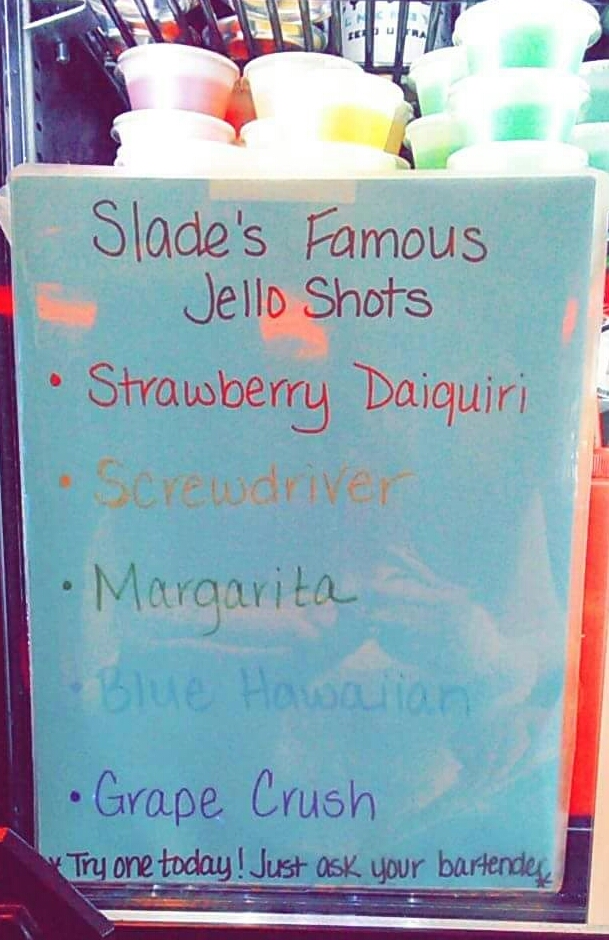 Slade's Famous
Jello Shots
• Strawberry Daiquiri
• Screwdriver
• Margarita
• Blue Hawaiian
• Grape Crush
* Try one today! Just ask your bartender *